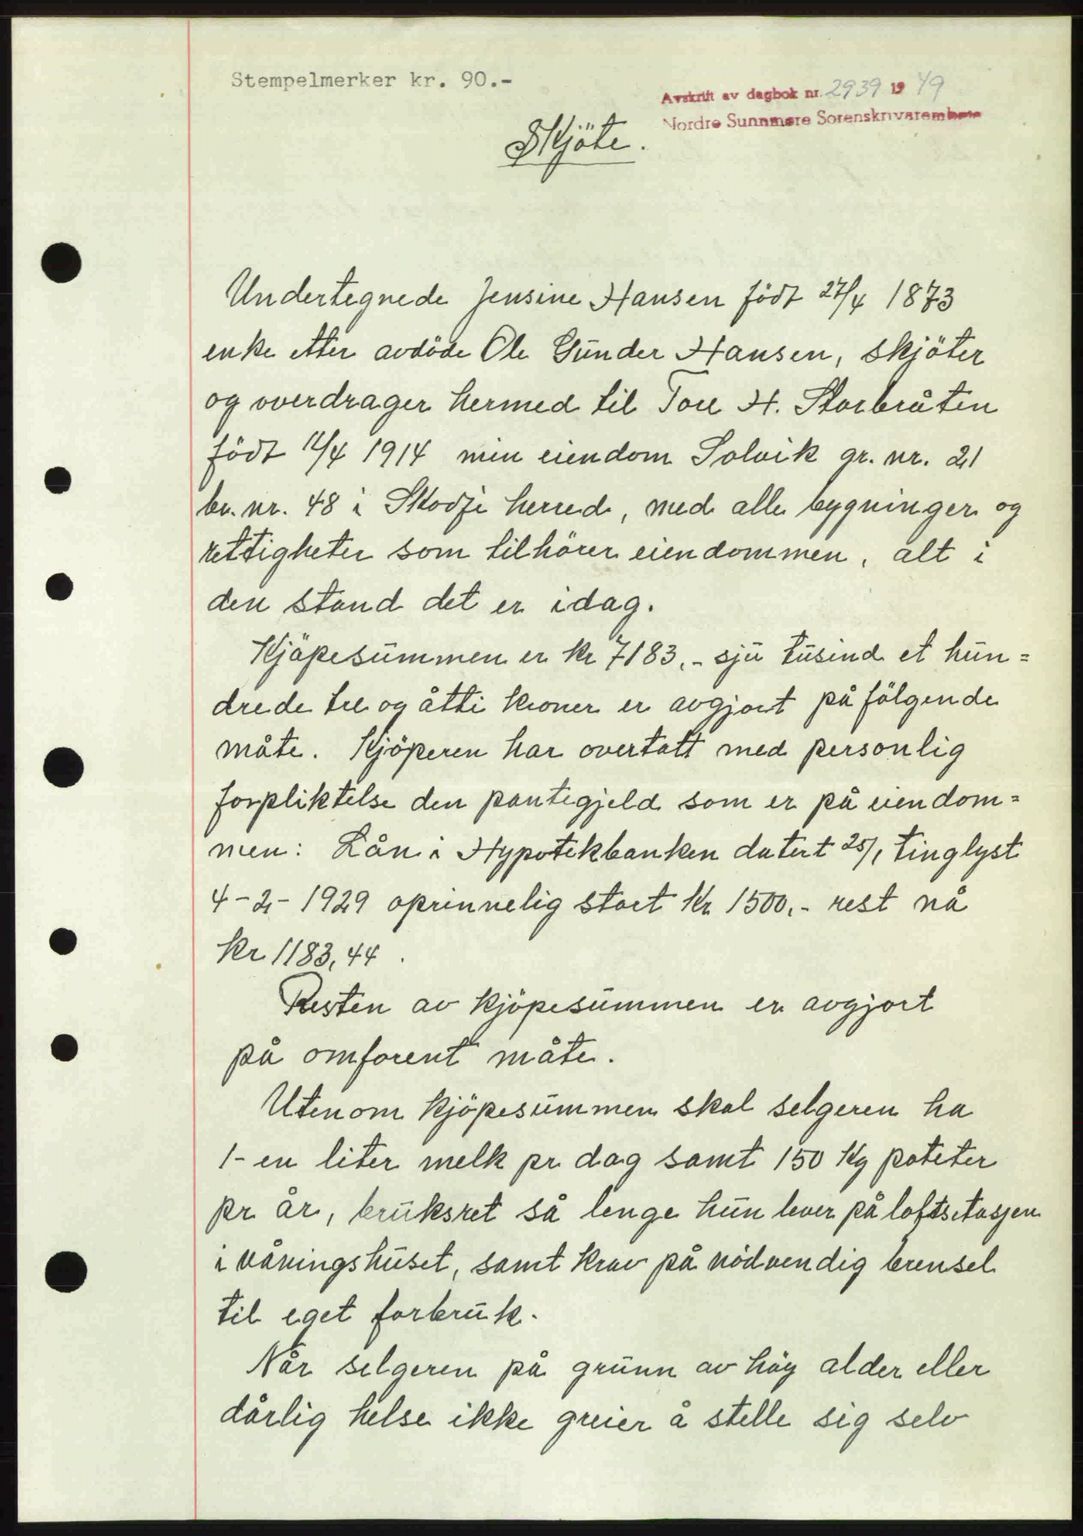 Stempelmerker kr. 90.-
Avskrift av dagbok nr. 2939 1949
Nordre Sunnmøre Sorenskriverembete
Skjöte.
Undertegnede Jensine Hansen födt 27/4 1873
enke etter avdöde Ole Gunder Hansen, skjöter
og overdrager hermed til Tore H. Storbråten
födt 12/4 1914 min eiendom Solvik gr. nr. 21
br. nr. 48 i Skodje herred, med alle bygninger og
rettigheter som tilhörer eiendommen, alt i
den stand det er idag.
Kjöpesummen er kr 7183,- sju tusind et hun=
drede tre og åtti kroner er avgjort på fölgende
måte. Kjöperen har overtatt med personlig
forpliktelse den pantegjeld som er på eiendom=
men: Lån i Hypotekbanken datert 25/1 tinglyst
4-2-1929 oprinnelig stort Kr 1500,- rest nå
kr 1183,44.
Resten av kjöpesummen er avgjort
på omforent måte.
Utenom kjöpesummen skal selgeren ha
1- en liter melk pr dag samt 150 Kg poteter
pr år, bruksret så lenge hun lever på loftsetasjen
i våningshuset, samt krav på nödvendig brensel
til eget forbruk.
Når selgeren på grunn av höy alder eller
dårlig helse ikke greier å stelle sig selv